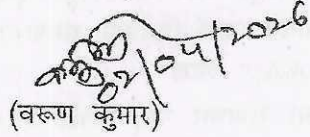 02/04/2026
(वरूण कुमार)